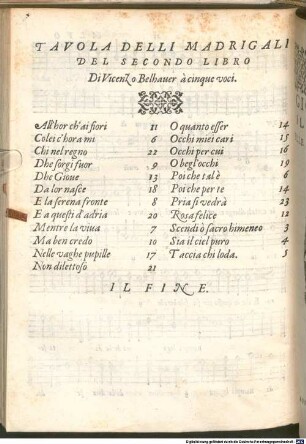 TAVOLA DELLI MADRIGALI
DEL SECONDO LIBRO
Di Vicenzo Belhauer à cinque voci.
Alhor ch'ai fiori 11
Colei c'hora mi 6
Chi nel regno 22
Dhe sorgi fuor 9
Dhe Gioue 13
Da lor nasce 18
E la serena fronte 8
E a questi d'adria 20
Mentre la viua 7
Ma ben credo 10
Nelle vaghe pupille 17
Non dilettoso 21
O quanto esser 14
Occhi miei cari 15
Occhi per cui 16
O begl'occhi 19
Poi che tal è 6
Poi che per te 14
Pria si vedrà 23
Rosa felice 12
Scendi ò sacro himeneo 3
Stia il ciel puro 4
Taccia chi loda. 5
IL FINE.